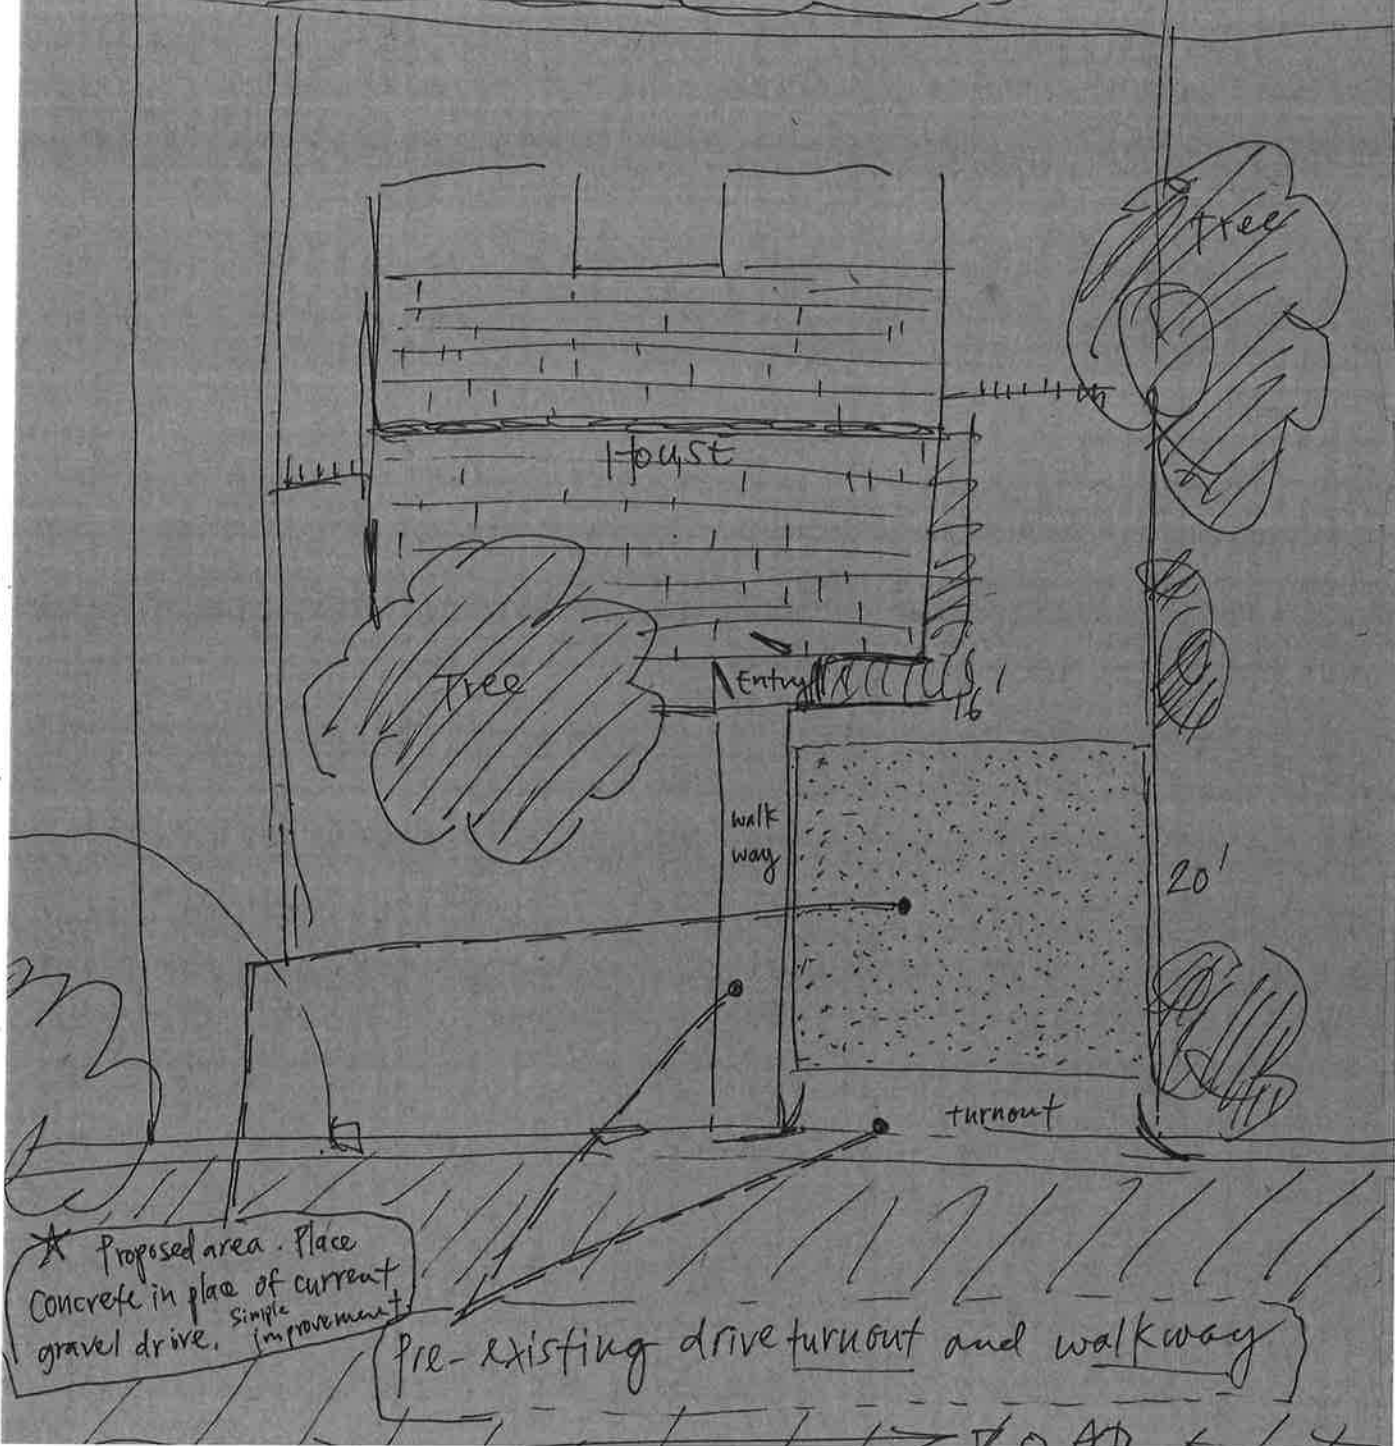 Tree
House
Tree
Entry
16'
walk
way
20'
turnout
★ Proposed area. Place
Concrete in place of current
gravel drive. Simple
improvement.
Pre-existing drive turnout and walkway
ROAD